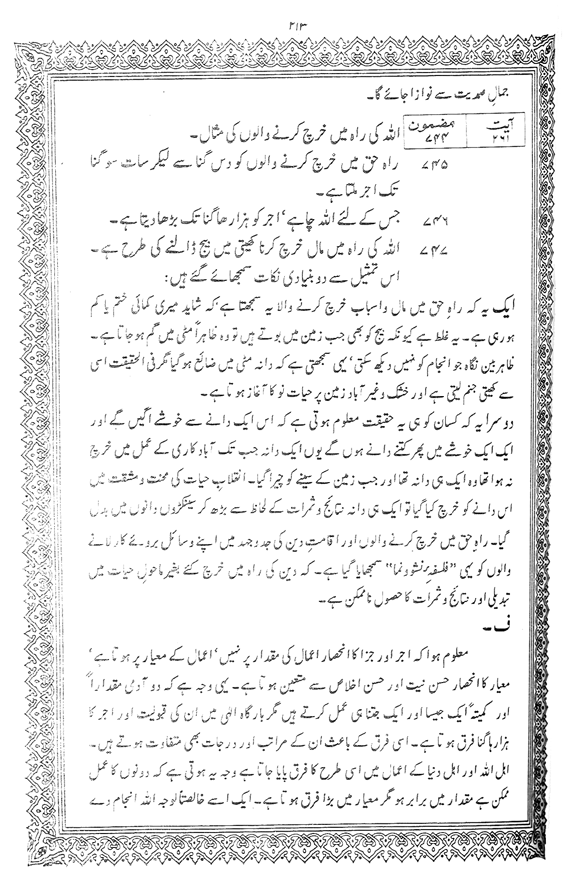 ۲۱۳
جمالِ صمدیت سے نوازا جائے گا۔
آیت ۲۶۱ مضمون ۷۴۴ اللہ کی راہ میں خرچ کرنے والوں کی مثال۔
۷۴۵ راہ حق میں خرچ کرنے والوں کو دس گنا سے لیکر سات سو گنا
تک اجر ملتا ہے۔
۷۴۶ جس کے لئے اللہ چاہے‘ اجر کو ہزارھا گنا تک بڑھا دیتا ہے۔
۷۴۷ اللہ کی راہ میں مال خرچ کرنا کھیتی میں بیج ڈالنے کی طرح ہے۔
اس تمثیل سے دو بنیادی نکات سمجھائے گئے ہیں:
ایک یہ کہ راہِ حق میں مال واسباب خرچ کرنے والا یہ سمجھتا ہے کہ شاید میری کمائی ختم یا کم
ہو رہی ہے۔ یہ غلط ہے کیونکہ بیج کو بھی جب زمین میں بوتے ہیں تو وہ ظاہراً مٹی میں گم ہو جاتا ہے۔
ظاہر بین نگاہ جو انجام کو نہیں دیکھ سکتی‘ یہی سمجھتی ہے کہ دانہ مٹی میں ضائع ہو گیا مگر فی الحقیقت اسی
سے کھیتی جنم لیتی ہے اور خشک وغیر آباد زمین پر حیات نو کا آغاز ہوتا ہے۔
دوسرا یہ کہ کسان کو ہی یہ حقیقت معلوم ہوتی ہے کہ اس ایک دانے سے خوشے اگیں گے اور
ایک ایک خوشے میں پھر کتنے دانے ہوں گے یوں ایک دانہ جب تک آباد کاری کے عمل میں خرچ
نہ ہوا تھا وہ ایک ہی دانہ تھا اور جب زمین کے سینے کو چیرا گیا۔ انقلابِ حیات کی محنت و مشقت میں
اس دانے کو خرچ کیا گیا تو ایک ہی دانہ نتائج و ثمرات کے لحاظ سے بڑھ کر سینکڑوں دانوں میں بدل
گیا۔ راہِ حق میں خرچ کرنے والوں اور اقامتِ دین کی جدوجہد میں اپنے وسائل بروئے کار لانے
والوں کو یہی ”فلسفۂ نشوونما“ سمجھایا گیا ہے۔ کہ دین کی راہ میں خرچ کئے بغیر ماحولِ حیات میں
تبدیلی اور نتائج و ثمرات کا حصول ناممکن ہے۔
ف۔
معلوم ہوا کہ اجر اور جزا کا انحصار اعمال کی مقدار پر نہیں‘ اعمال کے معیار پر ہوتا ہے‘
معیار کا انحصار حسن نیت اور حسن اخلاص سے متعین ہوتا ہے۔ یہی وجہ ہے کہ دو آدمی مقداراً
اور کمیتہً ایک جیسا اور ایک جتنا ہی عمل کرتے ہیں مگر بارگاہ الٰہی میں ان کی قبولیت اور اجر کا
ہزارہا گنا فرق ہوتا ہے۔ اسی فرق کے باعث ان کے مراتب اور درجات بھی متفاوت ہوتے ہیں۔
اہل اللہ اور اہل دنیا کے اعمال میں اسی طرح کا فرق پایا جاتا ہے وجہ یہ ہوتی ہے کہ دونوں کا عمل
ممکن ہے مقدار میں برابر ہو مگر معیار میں بڑا فرق ہوتا ہے۔ ایک اسے خالصتاً لوجہ اللہ انجام دے